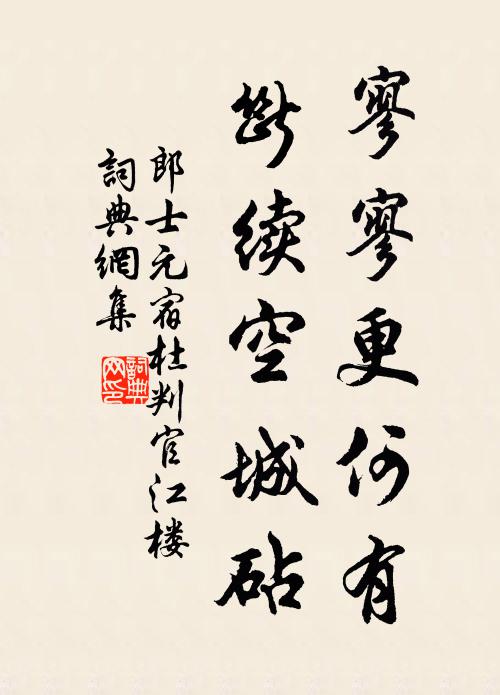 寥寥更何有
斷续空城砧
郎士元宿杜判官江楼
詞典網集
詞典
网印